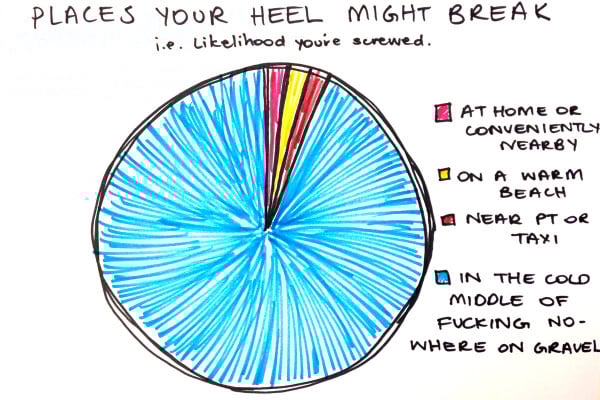 PLACES YOUR HEEL MIGHT BREAK
i.e. Likelihood you're screwed.
AT HOME OR
CONVENIENTLY
NEARBY
ON A WARM
BEACH
NEAR PT OR
TAXI
IN THE COLD
MIDDLE OF
FUCKING NO-
WHERE ON GRAVEL